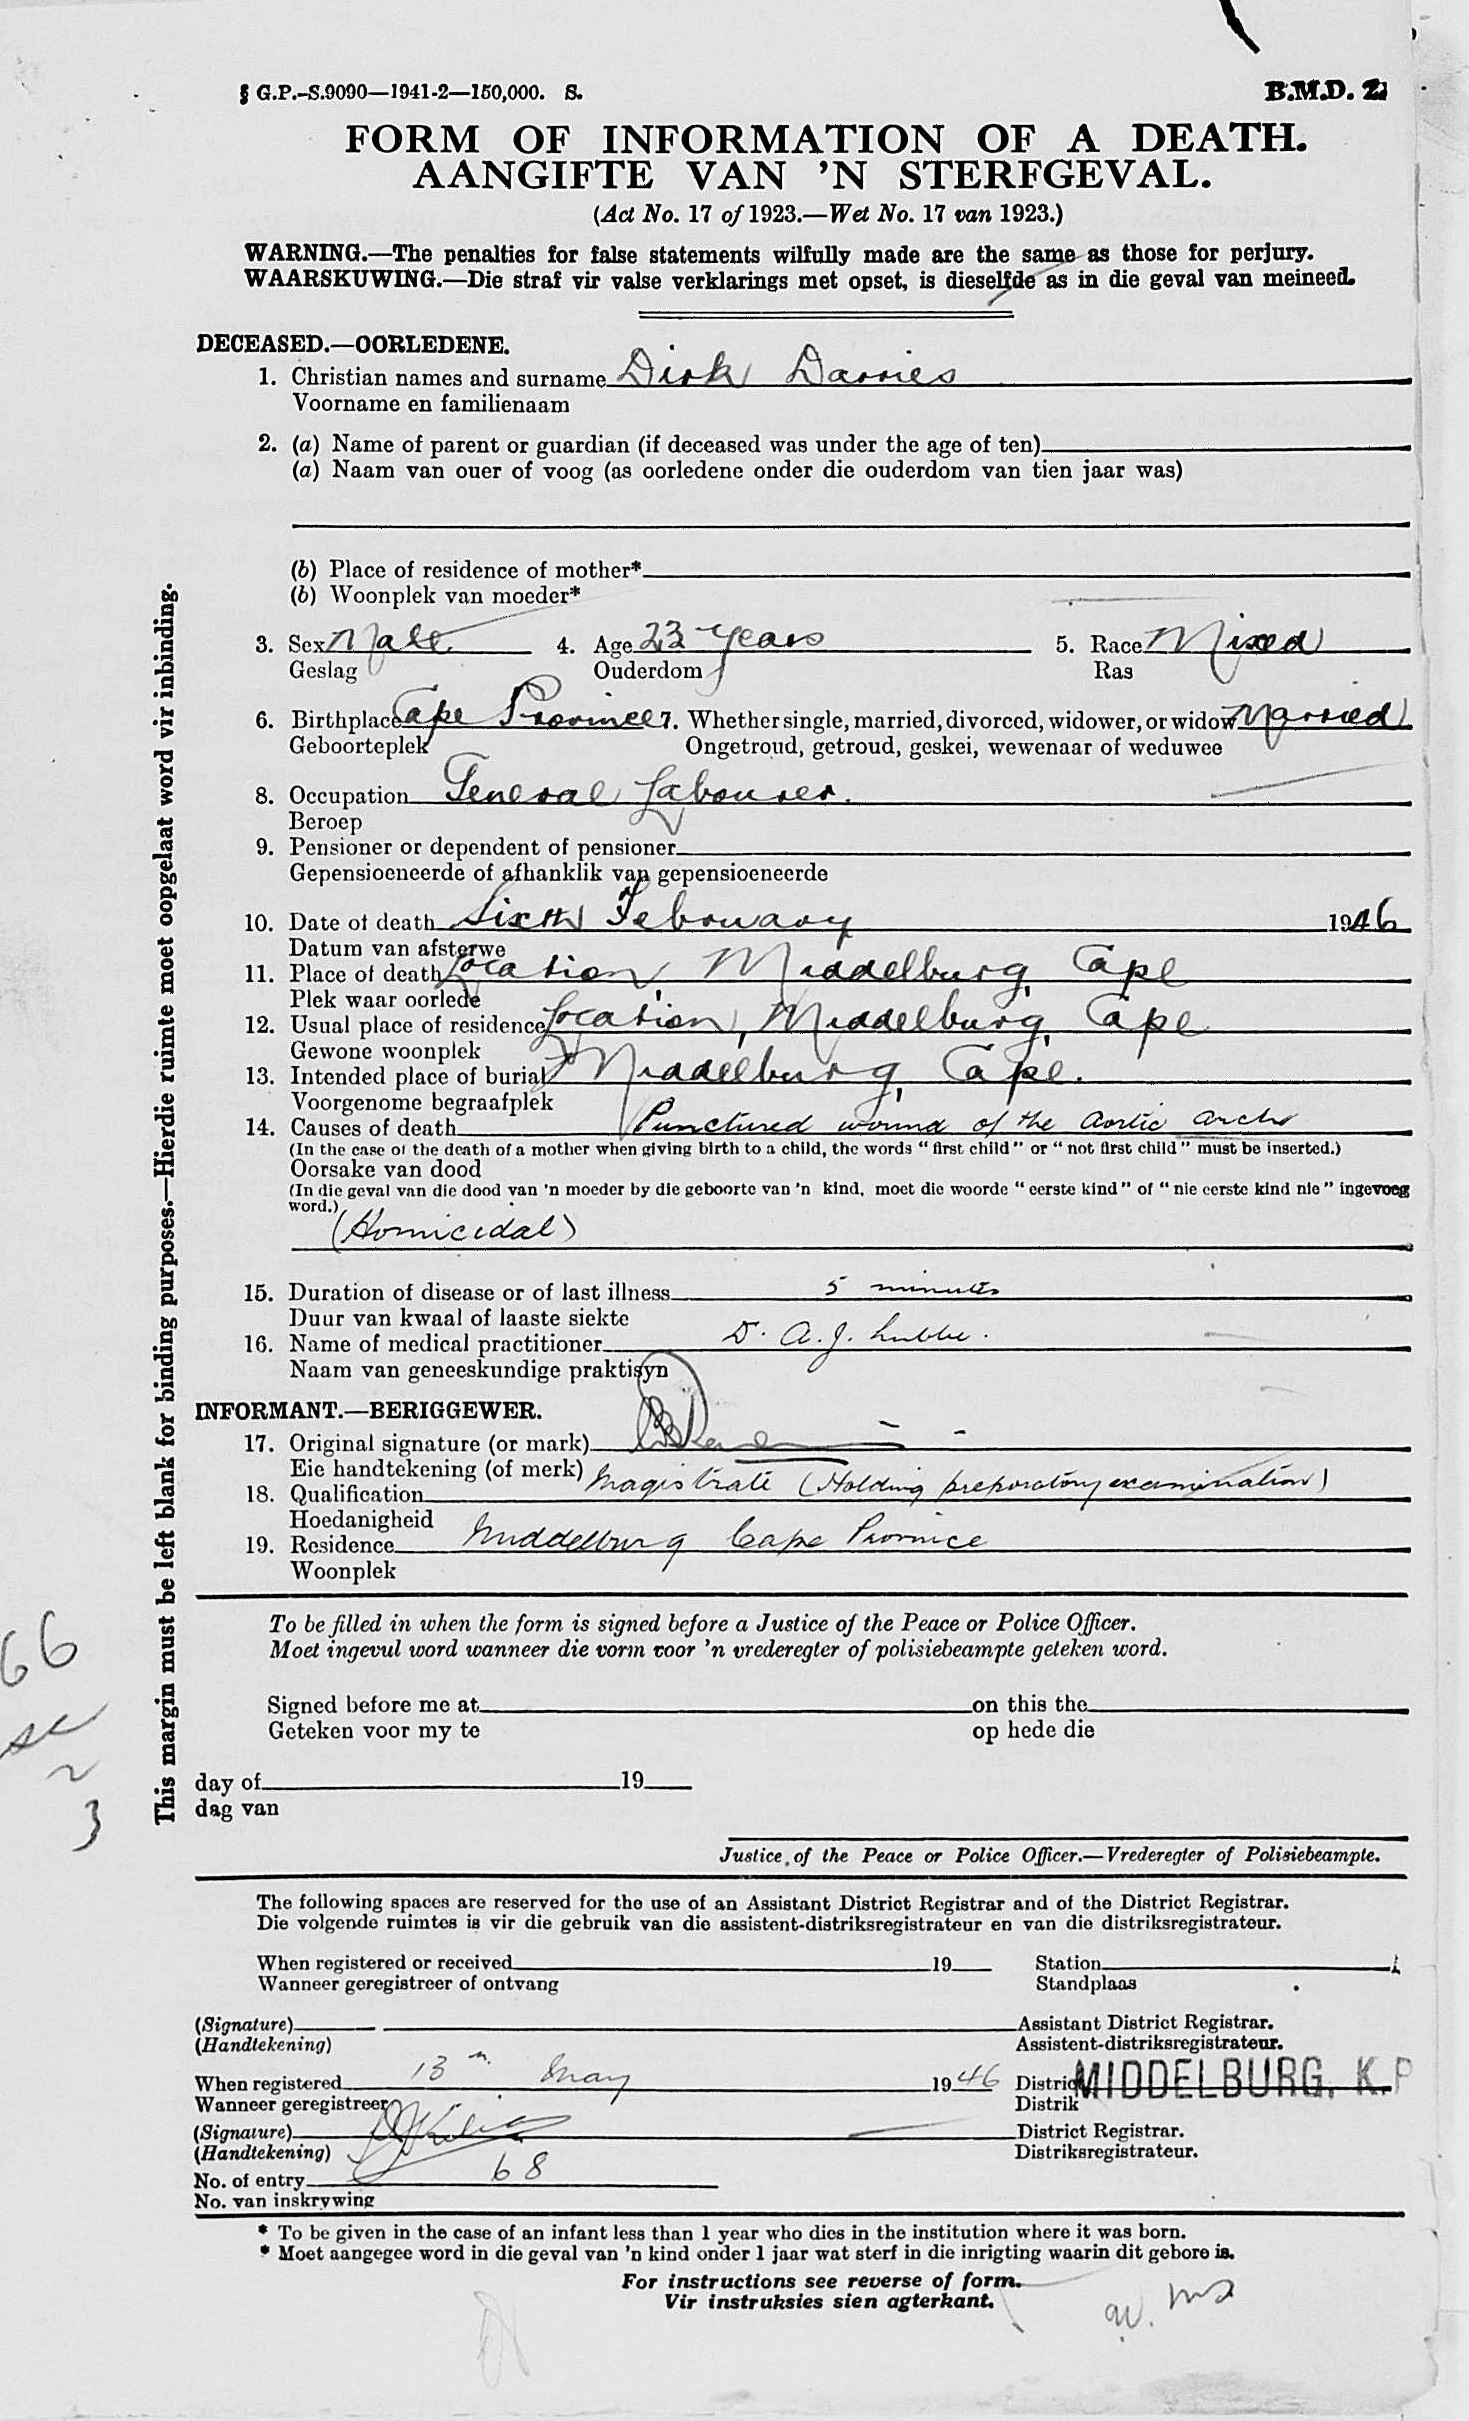 § G.P.-S.9090—1941-2—150,000. S. B.M.D. 2
FORM OF INFORMATION OF A DEATH.
AANGIFTE VAN 'N STERFGEVAL.
(Act No. 17 of 1923.—Wet No. 17 van 1923.)
WARNING.—The penalties for false statements wilfully made are the same as those for perjury.
WAARSKUWING.—Die straf vir valse verklarings met opset, is dieselfde as in die geval van meineed.
DECEASED.—OORLEDENE.
1. Christian names and surname Dirk Darries
Voorname en familienaam
2. (a) Name of parent or guardian (if deceased was under the age of ten)
(a) Naam van ouer of voog (as oorledene onder die ouderdom van tien jaar was)
(b) Place of residence of mother*
(b) Woonplek van moeder*
3. Sex Male 4. Age 23 years 5. Race Mixed
Geslag Ouderdom Ras
6. Birthplace Cape Province 7. Whether single, married, divorced, widower, or widow Married
Geboorteplek Ongetroud, getroud, geskei, wewenaar of weduwee
8. Occupation General Labourer.
Beroep
9. Pensioner or dependent of pensioner
Gepensioeneerde of afhanklik van gepensioeneerde
10. Date of death Sixth February 1946
Datum van afsterwe
11. Place of death Location, Middelburg, Cape
Plek waar oorlede
12. Usual place of residence Location, Middelburg, Cape
Gewone woonplek
13. Intended place of burial Middelburg, Cape.
Voorgenome begraafplek
14. Causes of death Punctured wound of the Aortic arch
(In the case of the death of a mother when giving birth to a child, the words "first child" or "not first child" must be inserted.)
Oorsake van dood
(In die geval van die dood van 'n moeder by die geboorte van 'n kind, moet die woorde "eerste kind" of "nie eerste kind nie" ingevoeg
word.)
(Homicidal)
15. Duration of disease or of last illness 5 minutes
Duur van kwaal of laaste siekte
16. Name of medical practitioner D. A. J. Lubbe.
Naam van geneeskundige praktisyn
INFORMANT.—BERIGGEWER.
17. Original signature (or mark)
Eie handtekening (of merk)
18. Qualification Magistrate (Holding preparatory examination)
Hoedanigheid
19. Residence Middelburg Cape Province
Woonplek
To be filled in when the form is signed before a Justice of the Peace or Police Officer.
Moet ingevul word wanneer die vorm voor 'n vrederegter of polisiebeampte geteken word.
Signed before me at on this the
Geteken voor my te op hede die
day of 19
dag van
Justice of the Peace or Police Officer.—Vrederegter of Polisiebeampte.
The following spaces are reserved for the use of an Assistant District Registrar and of the District Registrar.
Die volgende ruimtes is vir die gebruik van die assistent-distriksregistrateur en van die distriksregistrateur.
When registered or received 19 Station
Wanneer geregistreer of ontvang Standplaas
(Signature) Assistant District Registrar.
(Handtekening) Assistent-distriksregistrateur.
When registered 13th May 1946 District MIDDELBURG, K.P
Wanneer geregistreer Distrik
(Signature) District Registrar.
(Handtekening) Distriksregistrateur.
No. of entry 68
No. van inskrywing
* To be given in the case of an infant less than 1 year who dies in the institution where it was born.
* Moet aangegee word in die geval van 'n kind onder 1 jaar wat sterf in die inrigting waarin dit gebore is.
For instructions see reverse of form.
Vir instruksies sien agterkant.
This margin must be left blank for binding purposes.—Hierdie ruimte moet oopgelaat word vir inbinding.
66
3